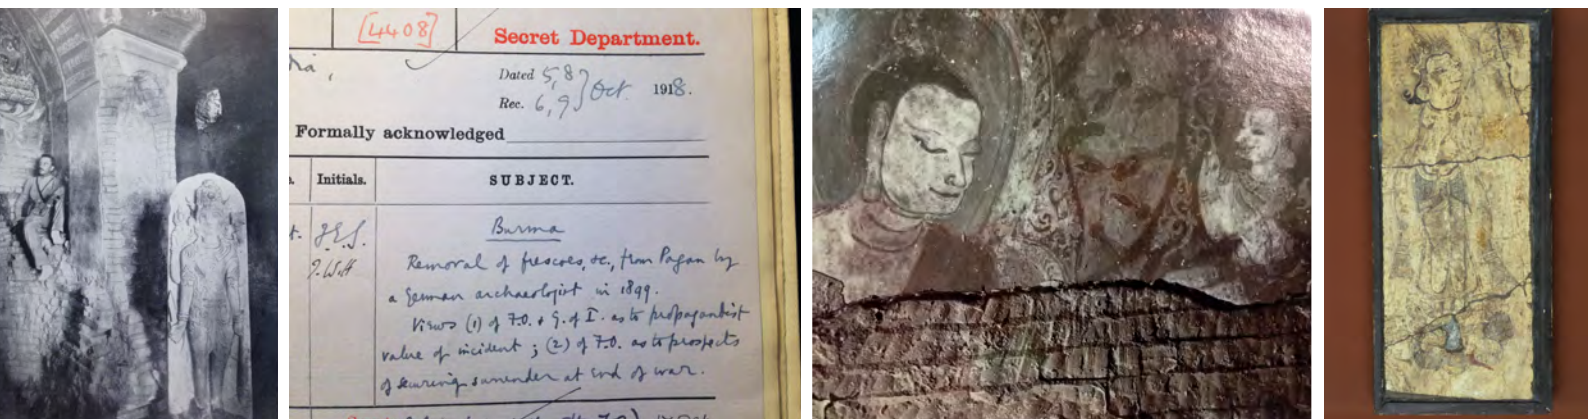 [4408]
Secret Department.
dia,
Dated 5,8
Rec. 6,9
Oct. 1918.
Formally acknowledged
Initials. SUBJECT.
t. J.E.S.
Burma
J.W.H
Removal of frescoes, &c., from Pagan by
a German archaeologist in 1899.
Views (1) of F.O. & G. of I. as to propagandist
value of incident; (2) of F.O. as to prospects
of securing surrender at end of war.